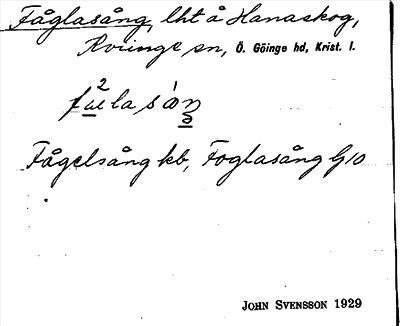 Fåglasång, lht å Hanaskog,
Kviinge sn, Ö. Göinge hd, Krist. l.
Fågelsång kb, Foglasång G10
JOHN SVENSSON 1929